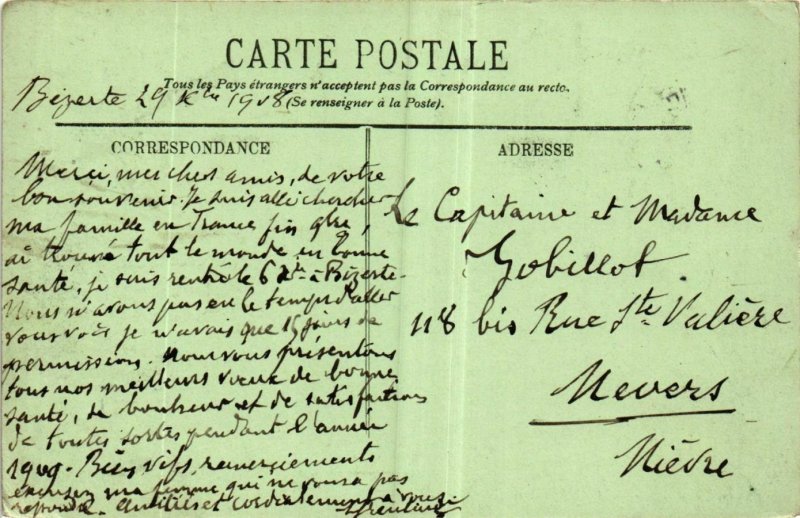 CARTE POSTALE
Tous les Pays étrangers n'acceptent pas la Correspondance au recto.
(Se renseigner à la Poste).
Bizerte 29 Xbre 1908
CORRESPONDANCE
Merci, mes chers amis, de votre
bon souvenir. Je suis allé chercher
ma famille en France fin 9bre,
ai trouvé tout le monde en bonne
santé, je suis rentré le 6 Xbre à Bizerte.
Nous n'avons pas eu le temps d'aller
vous voir je n'avais que 15 jours de
permission. Nous vous présentons
tous nos meilleurs vœux de bonne
santé, de bonheur et de satisfactions
de toutes sortes pendant l'année
1909. Bien vifs remerciements
excusez ma femme qui ne vous a pas
répondu. Amitiés et cordialement à vous
ADRESSE
Le Capitaine et Madame
Gobillot
118 bis Rue Ste Valière
Nevers
Nièvre